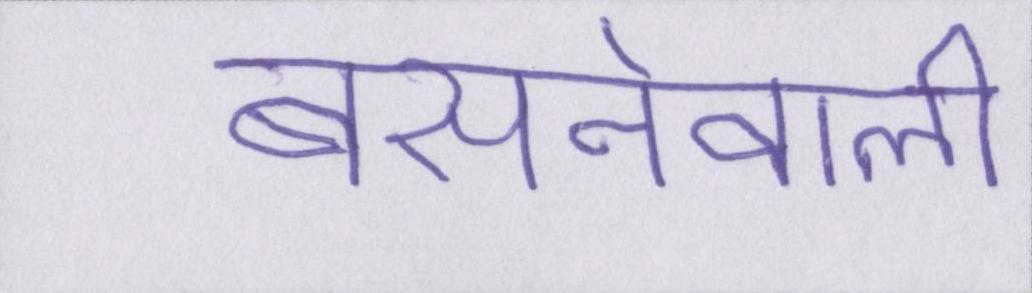 बसनेवाली